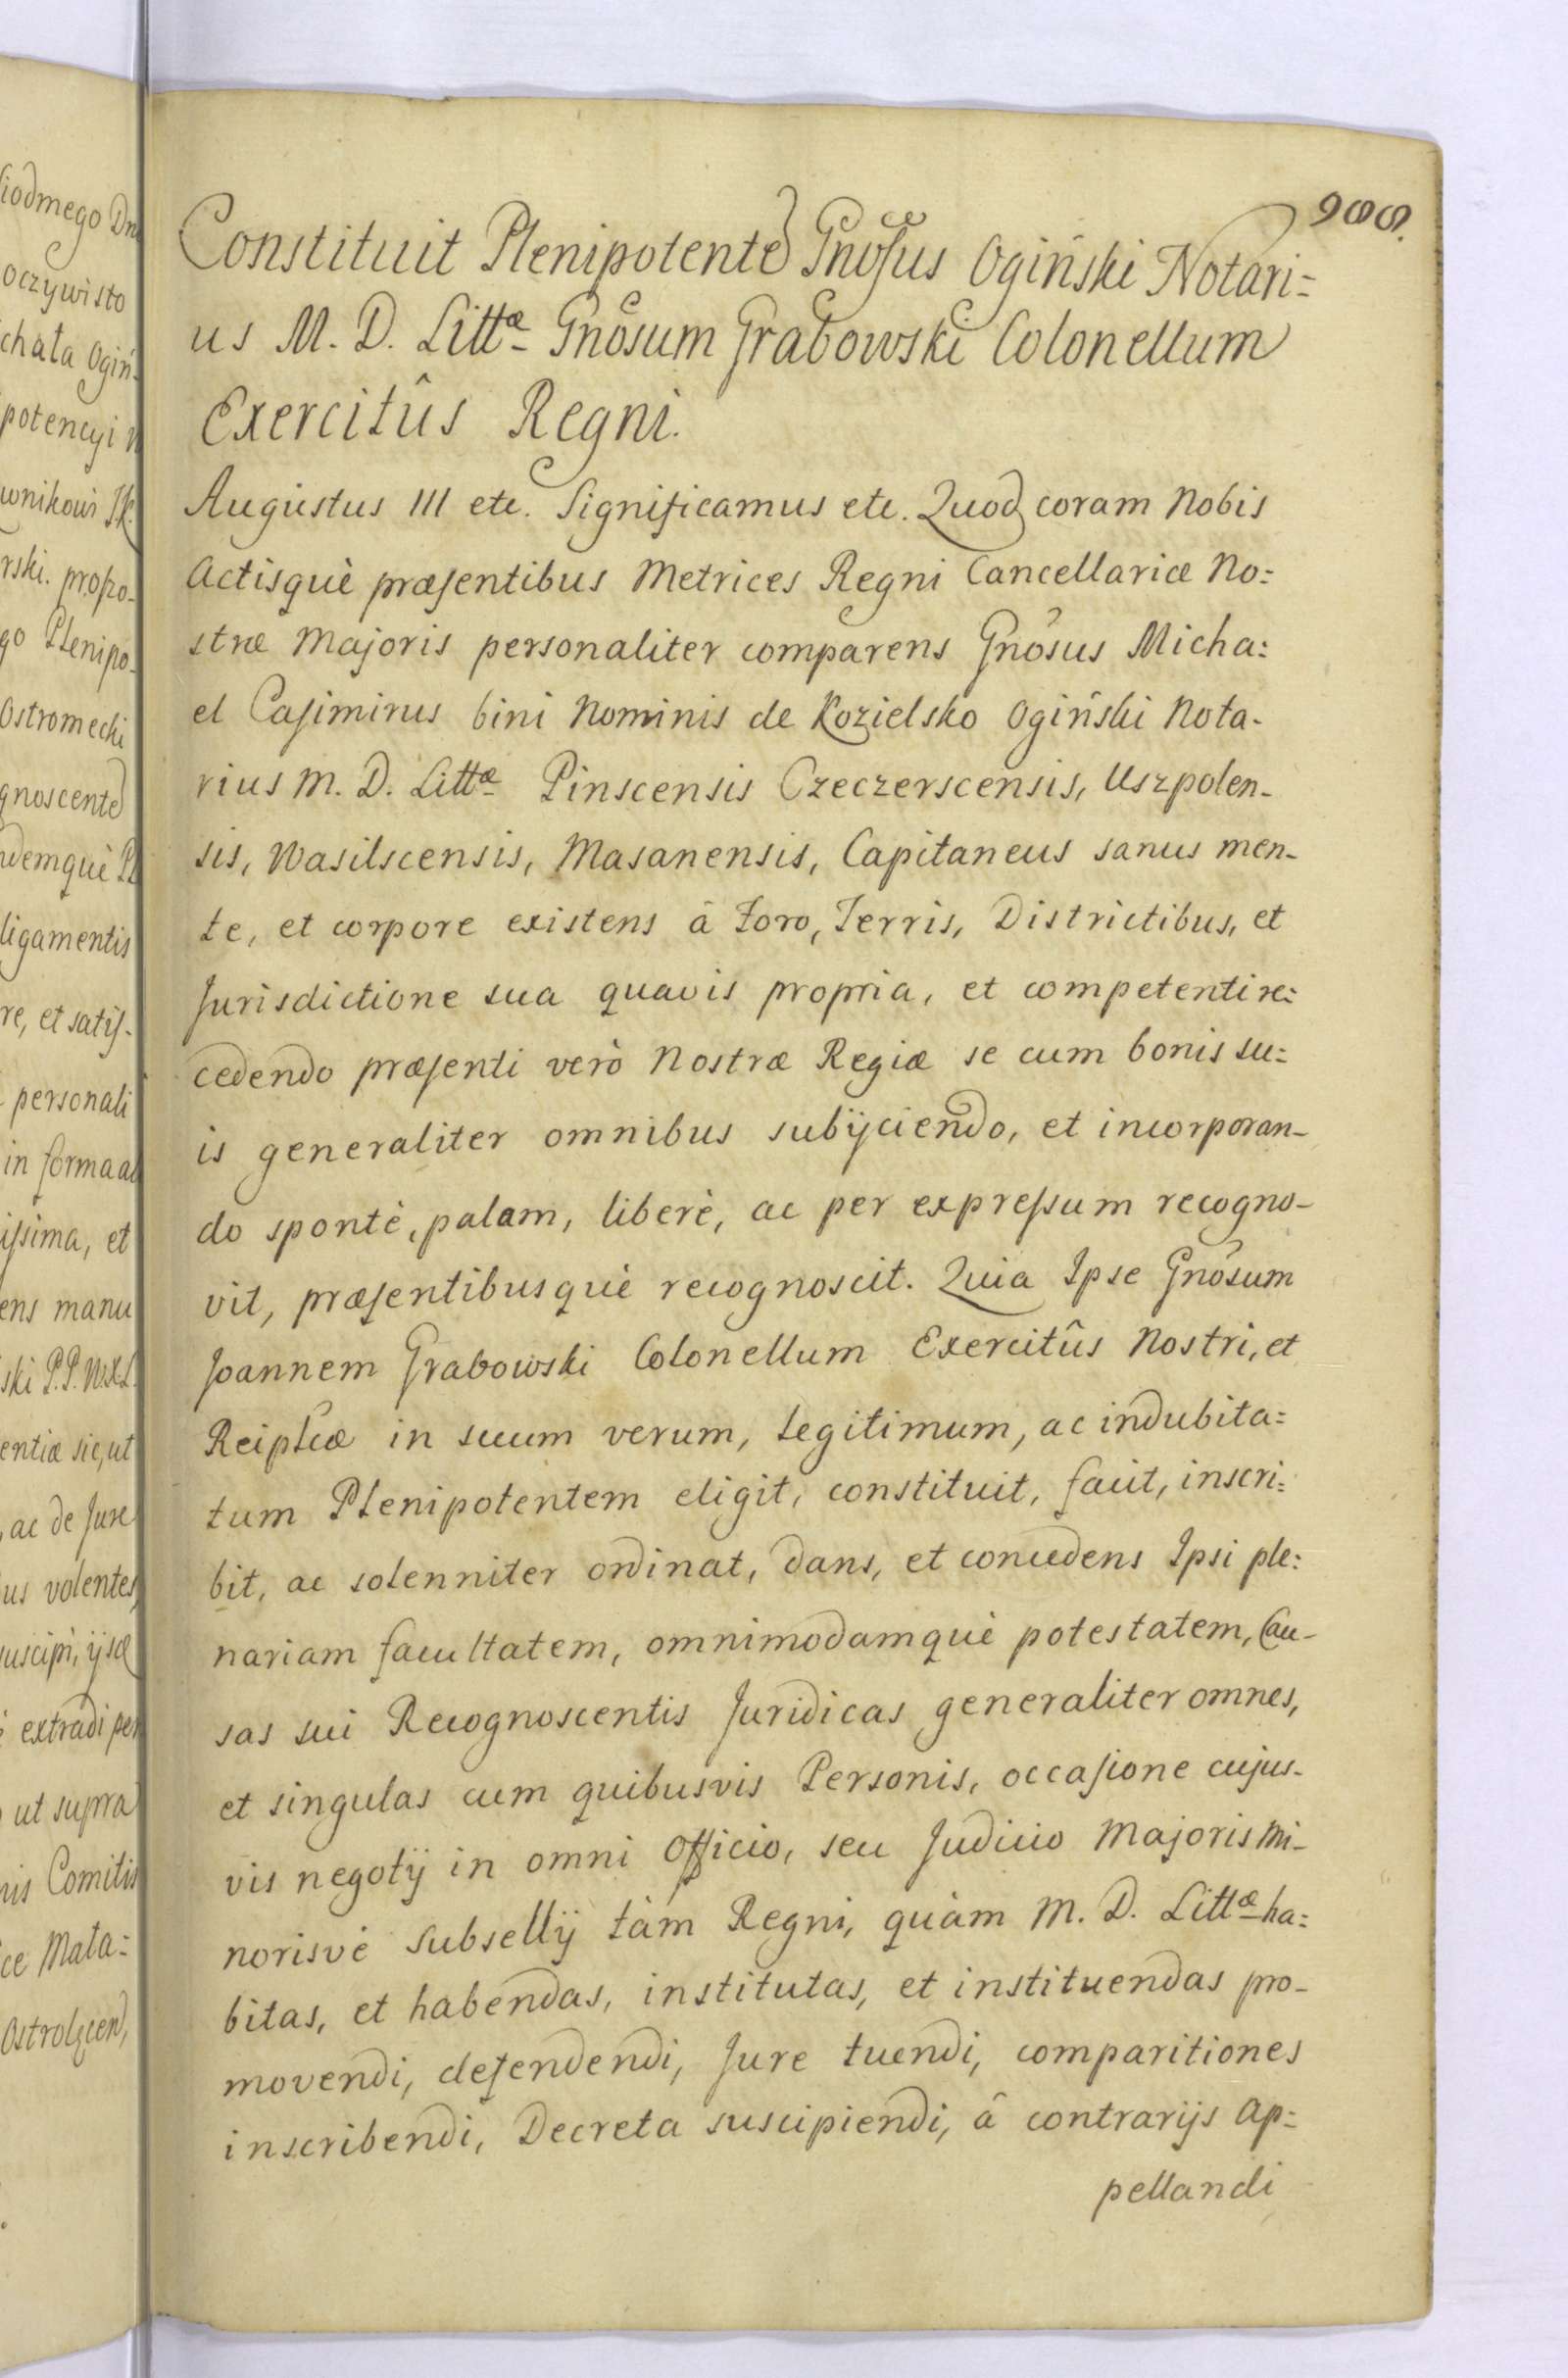 iodmego Dn
oczywisto
chała Ogiń-
potencyi
wnikowi
rski. propo-
go Plenipo-
Ostromecki
gnoscente
ndemquè Pl
ligamentis
re, et satis-
personali
in forma a
issima, et
ens manu
ski P.P.W.X.L.
entiæ sic, ut
, ac de Jure
us volentes,
suscipi,
extradi per
ut supra
nis Comitis
ce Mala=
988.
Constituit Plenipotente Gnosus Ogiński Notari=
us M. D. Littæ Gnosum Grabowski Colonellum
Exercitûs Regni.
Augustus III etc. Significamus etc. Quod coram Nobis
Actisquè præsentibus Metrices Regni Cancellariæ No=
stræ Majoris personaliter comparens Gnosus Micha=
el Casimirus bini Nominis de Kozielsko Ogiński Nota-
rius M. D. Littæ Pinscensis Czeczerscensis, Uszpolen-
sis, Wasilscensis, Masanensis, Capitaneus sanus men-
te, et corpore existens â Foro, Terris, Districtibus, et
Jurisdictione sua quavis propria, et competenti re=
cedendo præsenti verò Nostræ Regiæ se cum bonis su=
is generaliter omnibus subijciendo, et incorporan-
do spontè, palam, liberè, ac per expressum recogno-
vit, præsentibusquè recognoscit. Quia Ipse Gnosum
Joannem Grabowski Colonellum Exercitûs Nostri, et
Reiplcæ in suum verum, legitimum, ac indubita=
tum Plenipotentem eligit, constituit, facit, inscri=
bit, ac solenniter ordinat, dans, et concedens Ipsi ple=
nariam facultatem, omnimodamquè potestatem, Cau-
sas sui Recognoscentis Juridicas generaliter omnes,
et singulas cum quibusvis Personis, occasione cujus-
vis negotij in omni Officio, seu Judicio Majoris Mi-
norisvè Subsellij tàm Regni, quàm M. D. Littæ ha=
bitas, et habendas, institutas, et instituendas pro-
movendi, defendendi, Jure tuendi, comparitiones
inscribendi, Decreta suscipiendi, â contrarijs ap=
pellandi